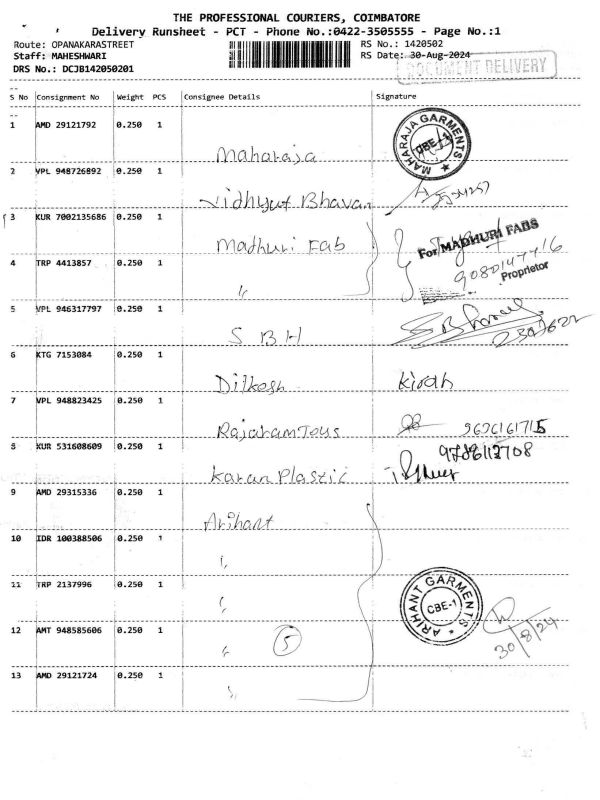 THE PROFESSIONAL COURIERS, COIMBATORE
Delivery Runsheet - PCT - Phone No.:0422-3505555 - Page No.:1
Route: OPANAKARASTREET RS No.: 1420502
Staff: MAHESHWARI RS Date: 30-Aug-2024
DRS No.: DCJB142050201 DOCUMENT DELIVERY
S No Consignment No Weight PCS Consignee Details Signature
1 AMD 29121792 0.250 1 Maharaja MAHARAJA GARMENTS CBE-1
2 VPL 948726892 0.250 1 Vidhyut Bhavan
3 KUR 7002135686 0.250 1 Madhuri Fab For MADHURI FABS
4 TRP 4413857 0.250 1 〃 9080147416 Proprietor
5 VPL 946317797 0.250 1 SBH
6 KTG 7153084 0.250 1 Dilkosh Kiran
7 VPL 948823425 0.250 1 Rajaram Toys 9626161715
8 KUR 531608609 0.250 1 Karan Plastic 9788112708
9 AMD 29315336 0.250 1 Arihant
10 IDR 100388506 0.250 1 〃
11 TRP 2137996 0.250 1 〃 ARIHANT GARMENTS CBE-1
12 AMT 948585606 0.250 1 〃 5 30/8/24
13 AMD 29121724 0.250 1 〃